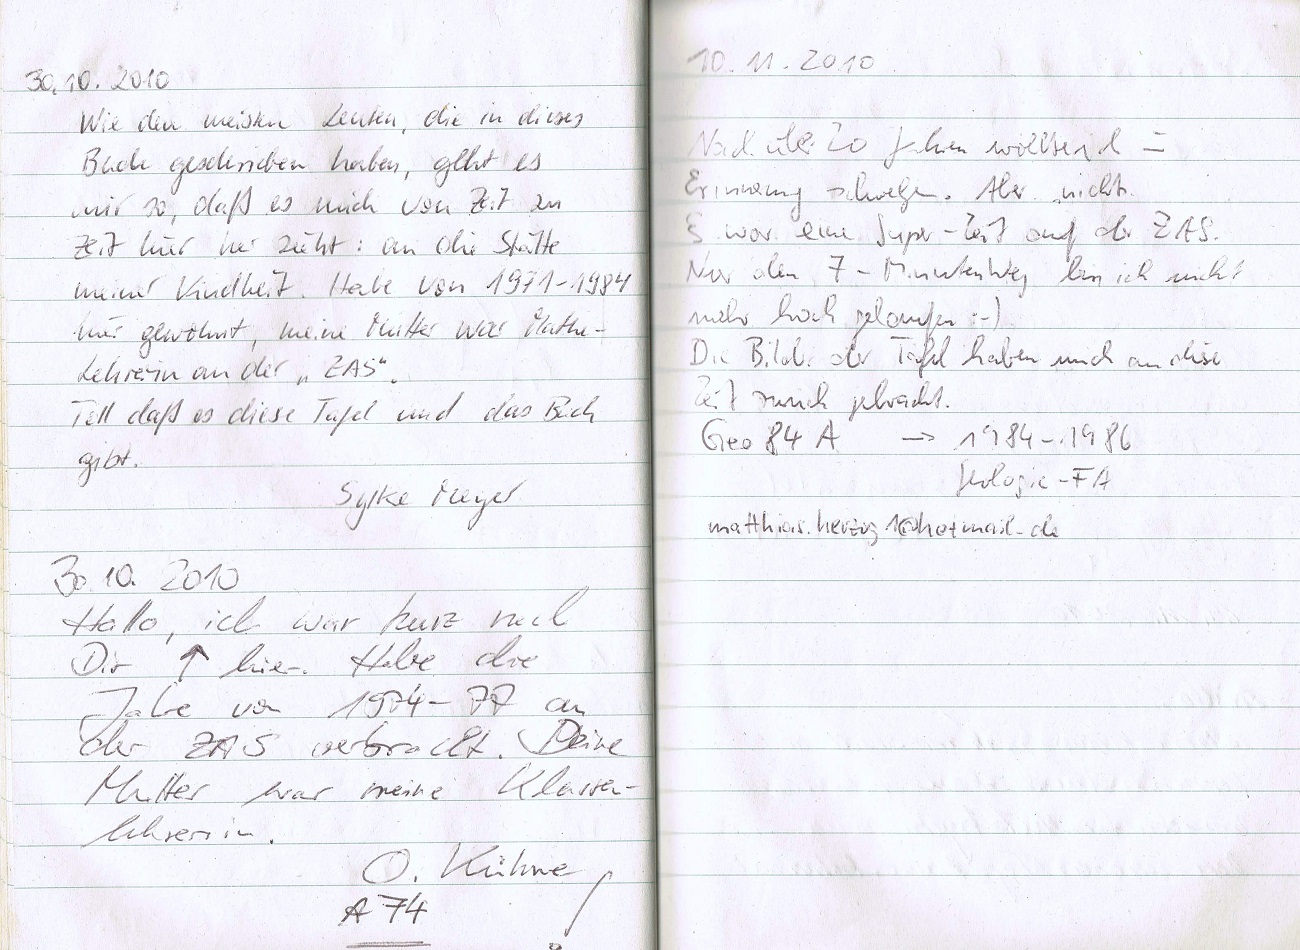 30.10.2010
Wie den meisten Leuten, die in dieses
Buch geschrieben haben, geht es
mir so, daß es mich von Zeit zu
Zeit hier her zieht: an die Stätte
meiner Kindheit. Habe von 1971-1984
hier gewohnt, meine Mutter war Mathe-
Lehrerin an der „ZAS“.
Toll daß es diese Tafel und das Buch
gibt.
Sylke Meyer
30.10. 2010
Hallo, ich war kurz nach
Dir ↑ hier. Habe die
Jahre von 1974-77 an
der ZAS verbracht. Deine
Mutter war meine Klassen-
lehrerin.
O. Kühne
A 74
10.11.2010
Nach über 20 Jahren
Erinnerung schwelgen. Aber nicht.
Es war eine Super-Zeit auf der ZAS.
Nur den 7-Minutenweg bin ich nicht
mehr hoch gelaufen :-)
Die Bilder der Tafel haben mich an diese
Zeit zurück gebracht.
Geo 84 A → 1984-1986
Geologie-FA
matthias.herzog1@hotmail.de